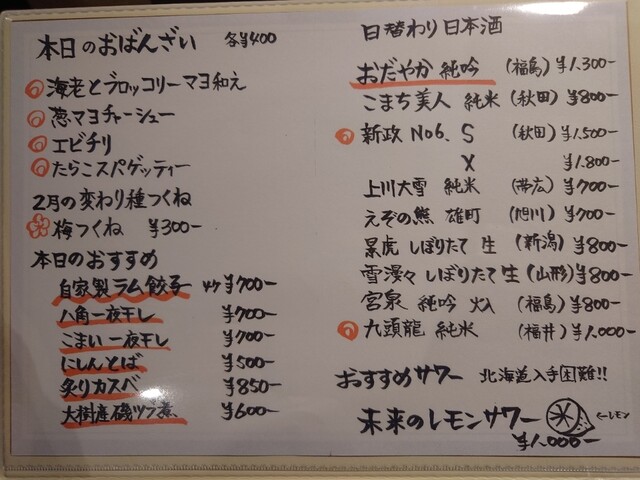 本日のおばんざい 各¥400
海老とブロッコリーマヨ和え
葱マヨチャーシュー
エビチリ
たらこスパゲッティー
2月の変わり種つくね
梅つくね ¥300-
本日のおすすめ
自家製ラム餃子 4ケ¥700-
八角一夜干し ¥700-
こまい一夜干し ¥700-
にしんとば ¥500-
炙りカスベ ¥850-
大樹産磯ツブ煮、 ¥600-
日替わり日本酒
おだやか 純吟 (福島) ¥1.300-
こまち美人 純米 (秋田) ¥800-
新政 No6、S (秋田) ¥1.500-
X ¥1.800-
上川大雪 純米 (帯広) ¥700-
えぞの熊 雄町 (旭川) ¥700-
景虎 しぼりたて 生 (新潟) ¥800-
雪漫々 しぼりたて 生 (山形) ¥800-
宮泉 純吟 火入 (福島) ¥800-
九頭龍 純米 (福井) ¥1,000-
おすすめサワー 北海道入手困難!!
未来のレモンサワー ←レモン
¥1.000-